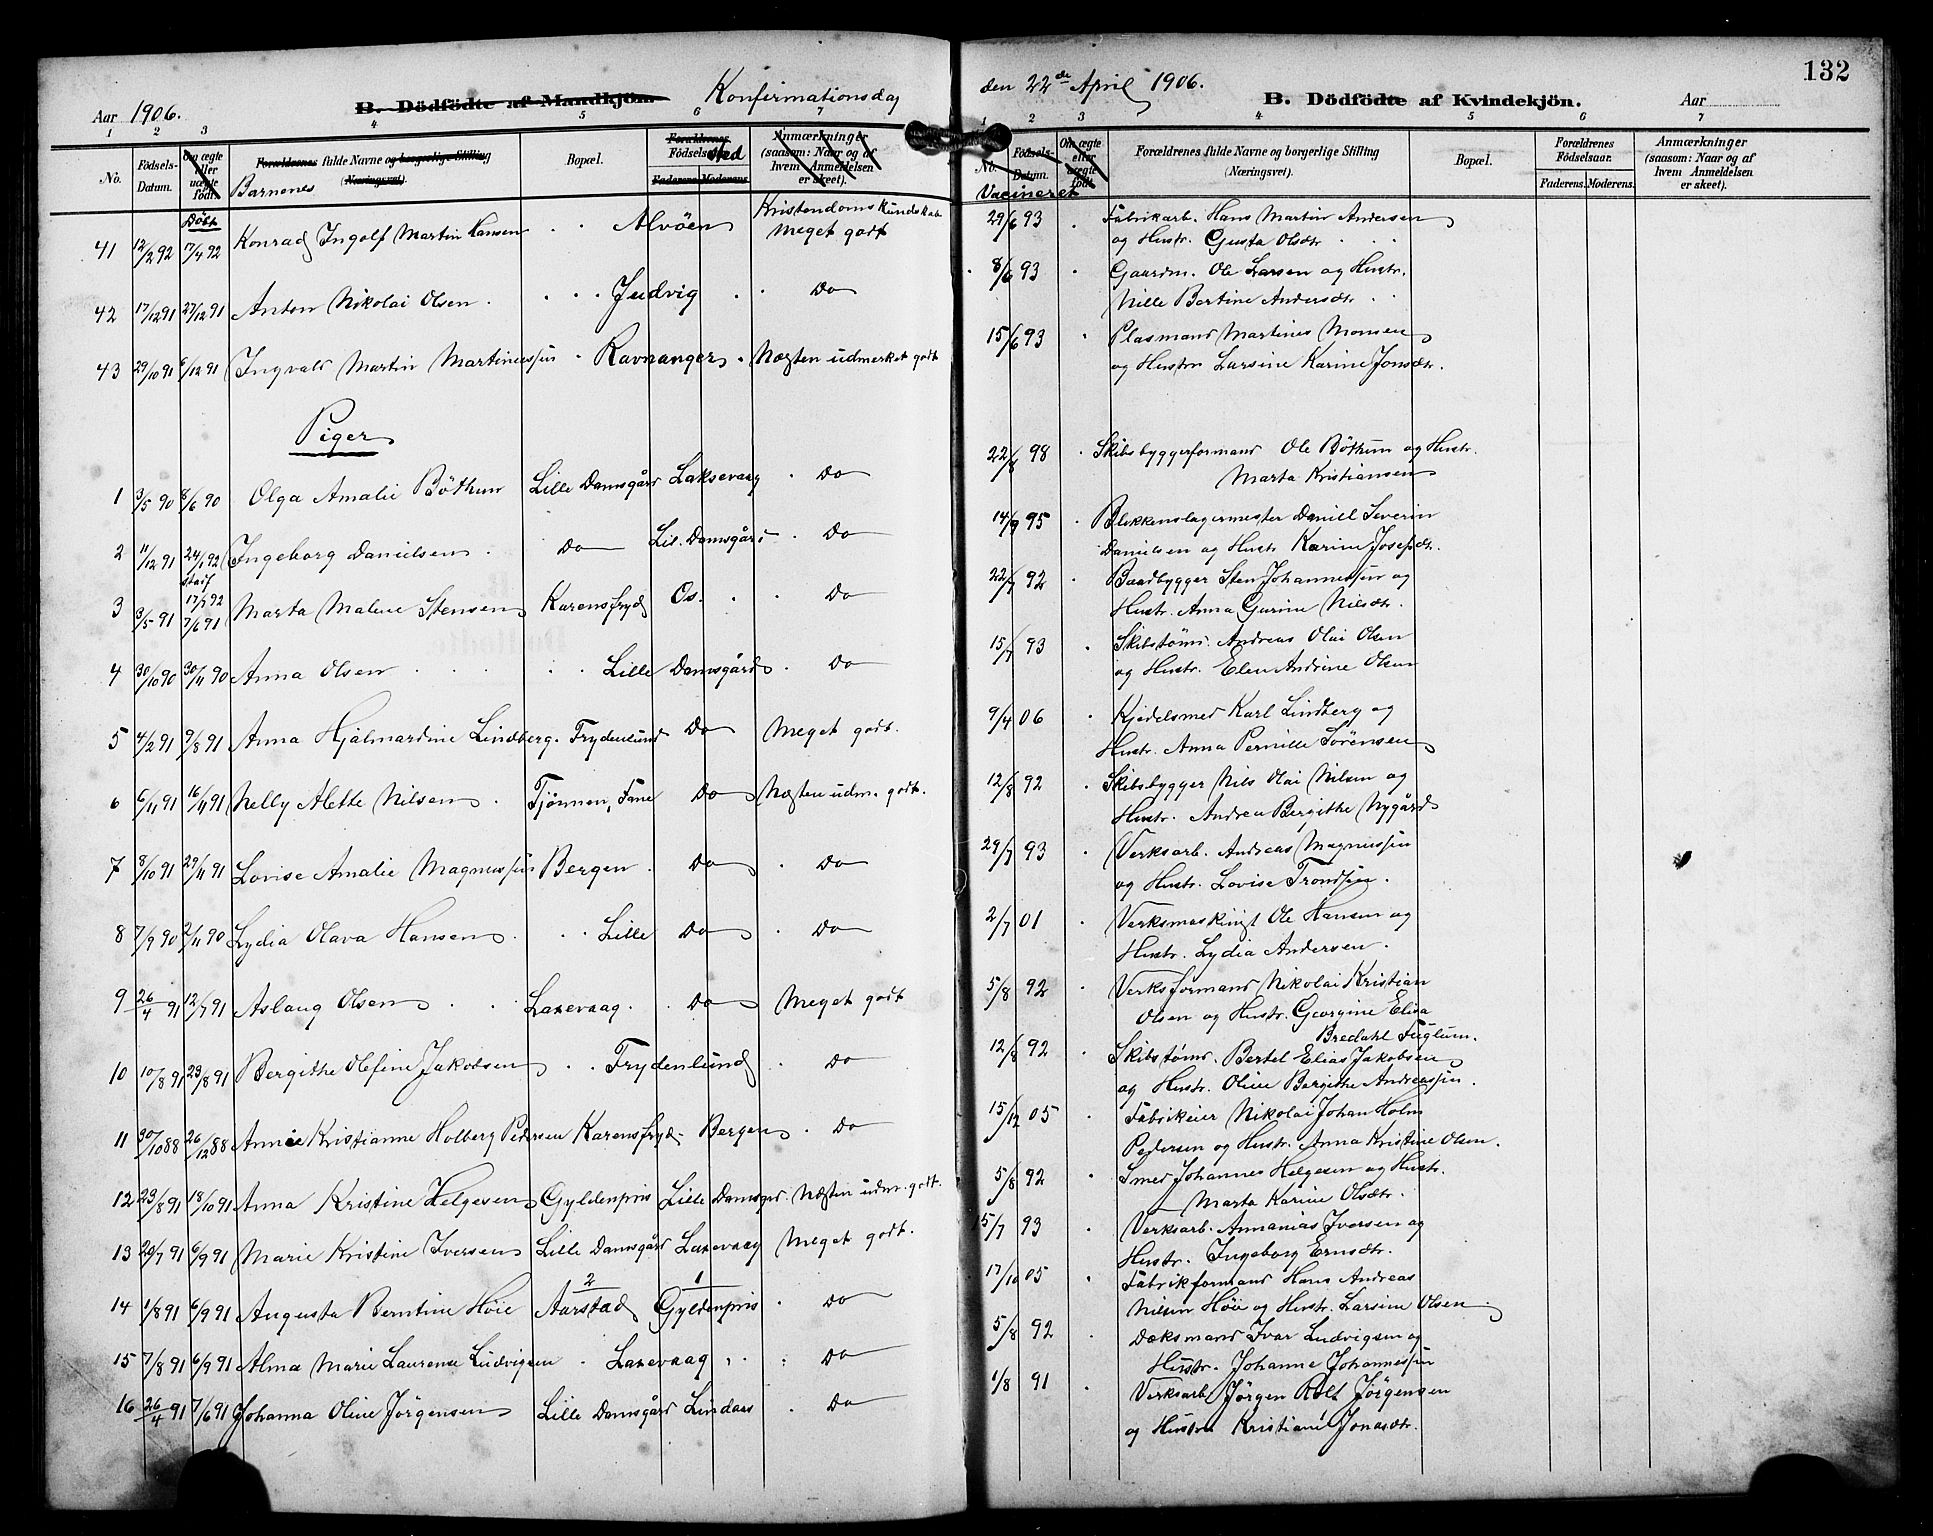 Aar 1906. B. Dödfödte af Mandkjön. Konfirmationsdag
1 2 3 4 5 6 7
No. Födsels-Datum. Om ægte eller uægte födt. Forældrenes fulde Navne og borgerlige Stilling (Næringsvei). Barnenes Bopæl. Forældrenes Födselsaar. sted Faderens. Moderens. Anmærkninger (saasom: Naar og af hvem Anmeldelsen er skeet).
Döbt Kristendomskundskab
41 12/2 92 17/4 92 Konrad Ingolf Martin Hansen Alvöen Meget godt
42 17/12 91 27/12 91 Anton Nikolai Olsen Judvig Do
43 29/10 91 6/12 91 Ingvald Martin Martinussen Ravnanger Næsten udmerket godt
Piger
1 3/5 90 8/6 90 Olga Amalie Böthun Lille Damsgård Laksevaag Do
2 11/12 91 24/1 92 Ingeborg Danielsen Do Lil. Damsgård Do
stadf 17/7 92
3 3/5 91 7/6 91 Marta Malene Stensen Karensfryd Os. Do
4 30/10 90 30/11 90 Anna Olsen Lille Damsgård Do
5 4/2 91 9/8 91 Anna Hjalmardine Lindberg. Frydenlund Do Meget godt.
6 6/11 91 16/11 91 Nelly Alette Nilsen Tjönnen, Fane Do Næsten udm. godt.
7 8/10 91 29/11 91 Lovise Amalie Magnussen Bergen Do Do
8 7/9 90 2/11 90 Lydia Olava Hansen Lille Do Do
9 26/4 91 12/7 91 Aslaug Olsen Laxevaag. Do Meget godt
10 10/8 91 23/8 91 Bergithe Olefine Jakobsen Frydenlund Do
11 30/10 88 26/12 88 Annie Kristianne Holberg Pedersen Karensfryd Bergen Do
12 23/8 91 18/10 91 Anna Kristine Helgesen Gyldenpris Lille Damsgrd. Næsten udm. godt.
13 20/7 91 6/9 91 Marie Kristine Iversen Lille Damsgård Laxevaag Meget godt.
2 1
14 1/8 91 6/9 91 Augusta Berntine Höie Aarstad Gyldenpris Do
15 7/8 91 6/9 91 Alma Marie Laurense Ludvigsen Laxevaag Do
16 26/4 91 7/6 91 Johanna Oline Jörgensen Lille Damsgård Lindaas Do
132
den 22de April 1906. B. Dödfödte af Kvindekjön. Aar
1 2 3 4 5 6 7
No. Födsels-Datum. Om ægte eller uægte födt. Forældrenes fulde Navne og borgerlige Stilling (Næringsvei). Bopæl. Forældrenes Födselsaar. Faderens. Moderens. Anmærkninger (saasom: Naar og af hvem Anmeldelsen er skeet).
Vacineret
29/6 93 Fabrikarb. Hans Martin Andersen
og Hustr. Gusta Olsdtr.
8/6 93 Gaardm. Ole Larsen og Hustr.
Nille Bertine Andersdtr.
15/6 93 Plasmand Martines Monsen
og Hustru Larsine Karine Jonsdtr.
22/8 98 Skibsbyggerformand Ole Böthun og Hustr.
Marta Kristiansen
14/9 95 Blikkenslagermester Daniell Severin
Danielsen og Hustr. Karine Josefsdtr.
22/7 92 Baadbygger Sten Johannessen og
Hustr. Anna Gurine Nilsdtr.
15/7 93 Skibstömr. Andreas Olai Olsen
og Hustr. Elen Andrine Olsen
9/4 06 Kjedelsmed Karl Lindberg og
Hustr. Anna Pernille Sörensen
12/8 92 Skibsbygger Nils Olai Nilsen og
Hustr. Andrea Bergithe Nygård
29/7 93 Verksarb. Andreas Magnussen
og Hustr. Lovise Trondsen.
2/7 01 Verksmaskinist Ole Hansen og
Hustr. Lydia Andersen.
5/8 92 Verksformand Nikolai Kristian
Olsen og Hustr. Georgine Elisa
Bredahl Fuglum.
12/8 92 Skibstömr. Bertel Elias Jakobsen
og Hustr. Oline Bergithe Andreassen.
15/12 05 Fabrikeier Nikolai Johan Holm
Pedersen og Hustr. Anna Kristine Olsen.
5/8 92 Smed Johannes Helgesen og Hustr.
Marta Karine Olsdtr.
15/7 93 Verksarb. Annanias Iversen og
Hustr. Ingeborg Ernsdtr.
17/10 05 Fabrikformand Hans Andreas
Nilsen Höie og Hustr. Larsine Olsen
5/8 92 Dæksmand Ivar Ludvigsen og
Hustr. Johanne Johannessen
1/8 91 Verksarb. Jörgen Jörgensen
og Hustru Kristiane Jonasdtr.